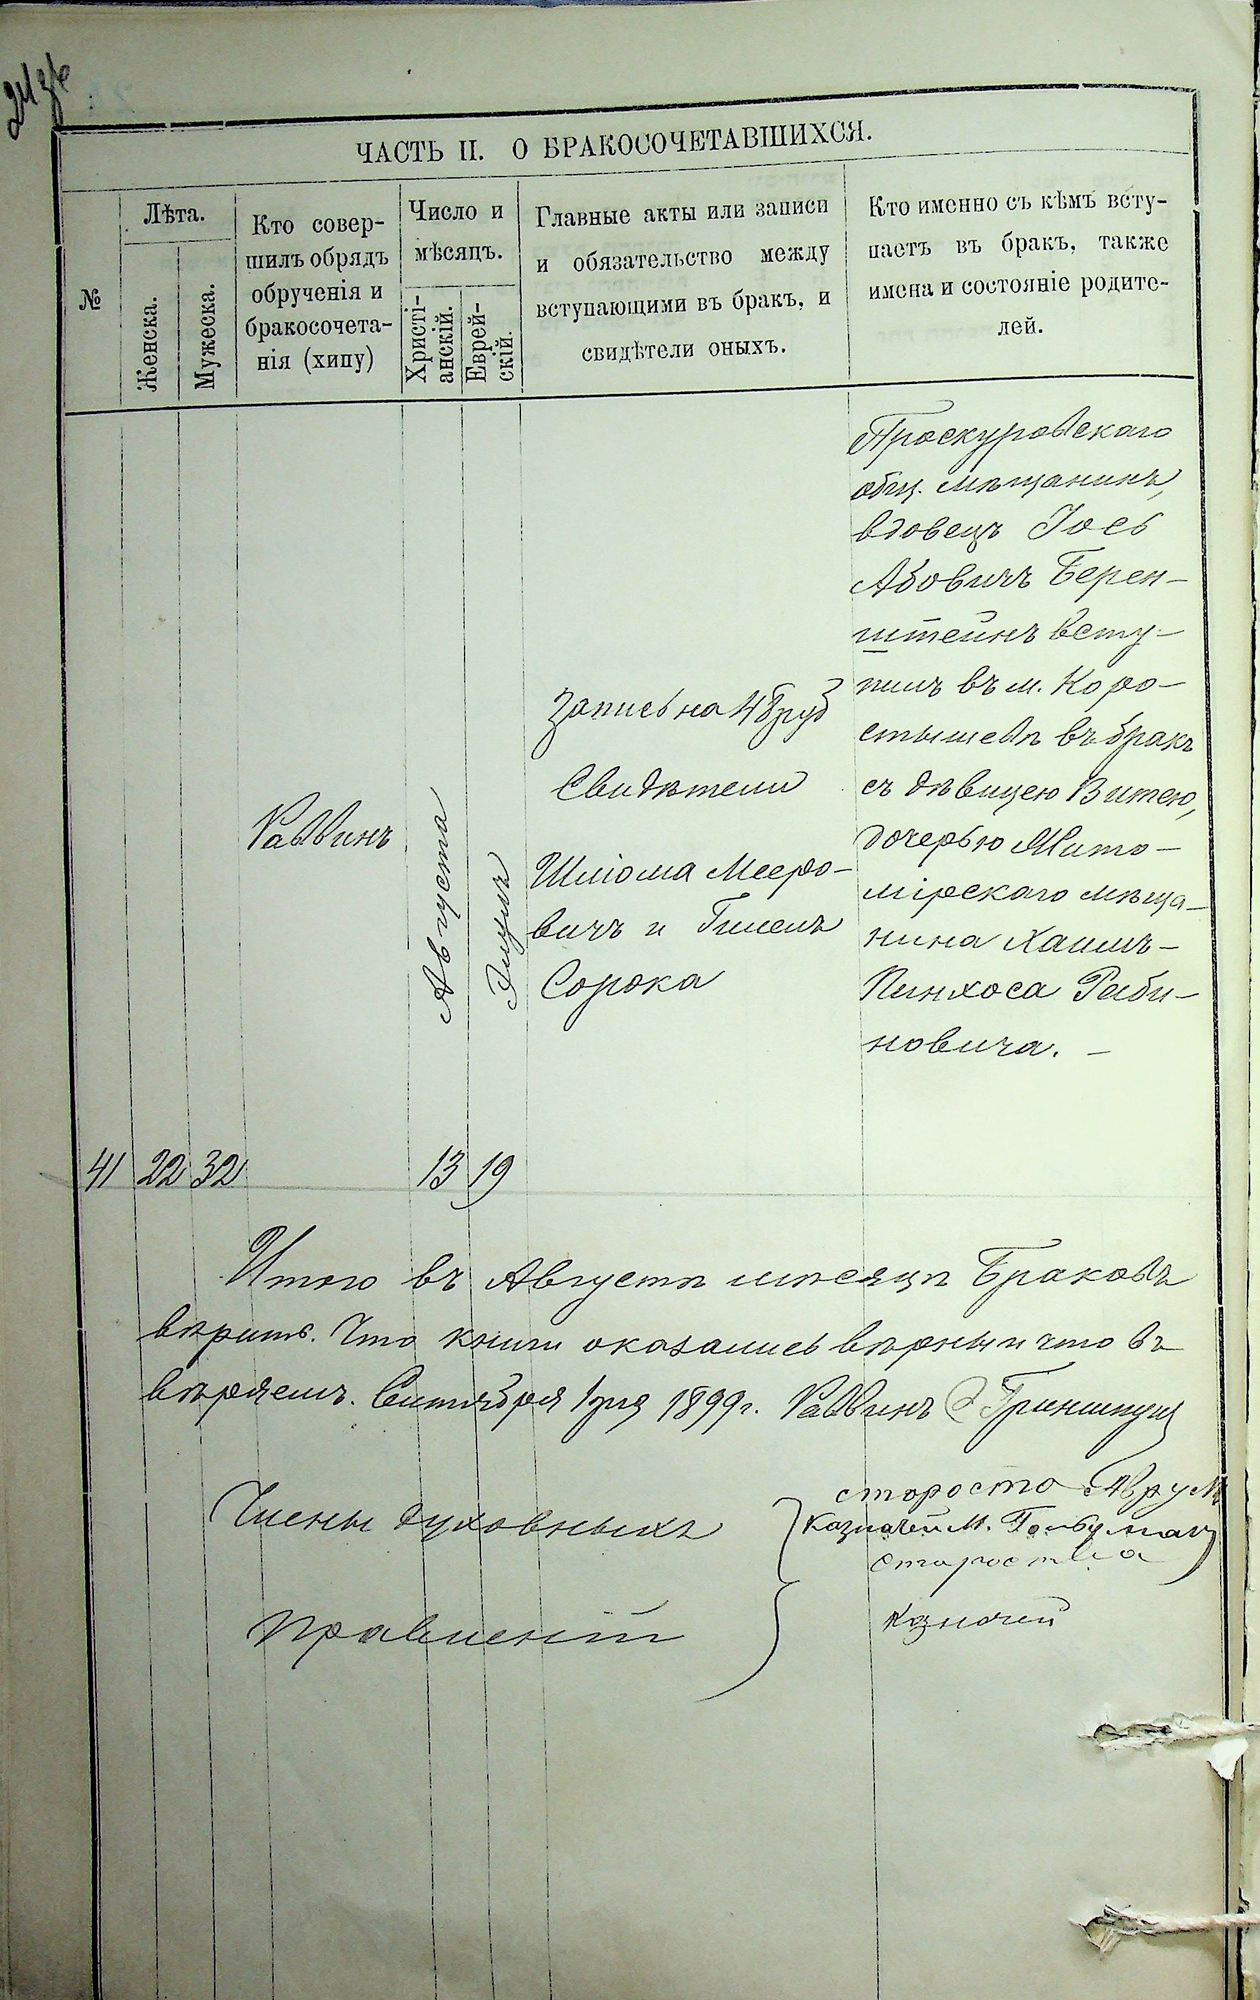 ЧАСТЬ II. О БРАКОСОЧЕТАВШИХСЯ.
№
Лѣта.
Женска.
Мужеска.
Кто совер-
шилъ обрядъ
обрученія и
бракосочета-
нія (хипу)
Число и
мѣсяцъ.
Христі-
анскій.
Еврей-
скій.
Главные акты или записи
и обязательство между
вступающими въ бракъ, и
свидѣтели оныхъ.
Кто именно съ кѣмъ всту-
паетъ въ бракъ, также
имена и состояніе родите-
лей.
41
22
32
Раввинъ
Августа
13
Элулъ
19
Запись на 48 руб
Свидѣтели
Шліома Мееро-
вичъ и Гилелъ
Сорока
Проскуровскаго
общ. мѣщанинъ,
вдовецъ Іось
Абовичъ Берен-
штейнъ всту-
пилъ въ м. Коро-
стышевѣ въ бракъ
съ дѣвицею Витею,
дочерью Жито-
мірскаго мѣща-
нина Хаимъ-
Пинхоса Раби-
новича. —
Итого въ Августѣ мѣсяцѣ Браковъ
вѣрить. Что книги оказались вѣрны и что въ
вѣряемъ. Сентября 1 дня 1899 г. Раввинъ Гриншпун
Члены духовныхъ
Правленій
староста Аврум
Казначей М.
староста
казначей